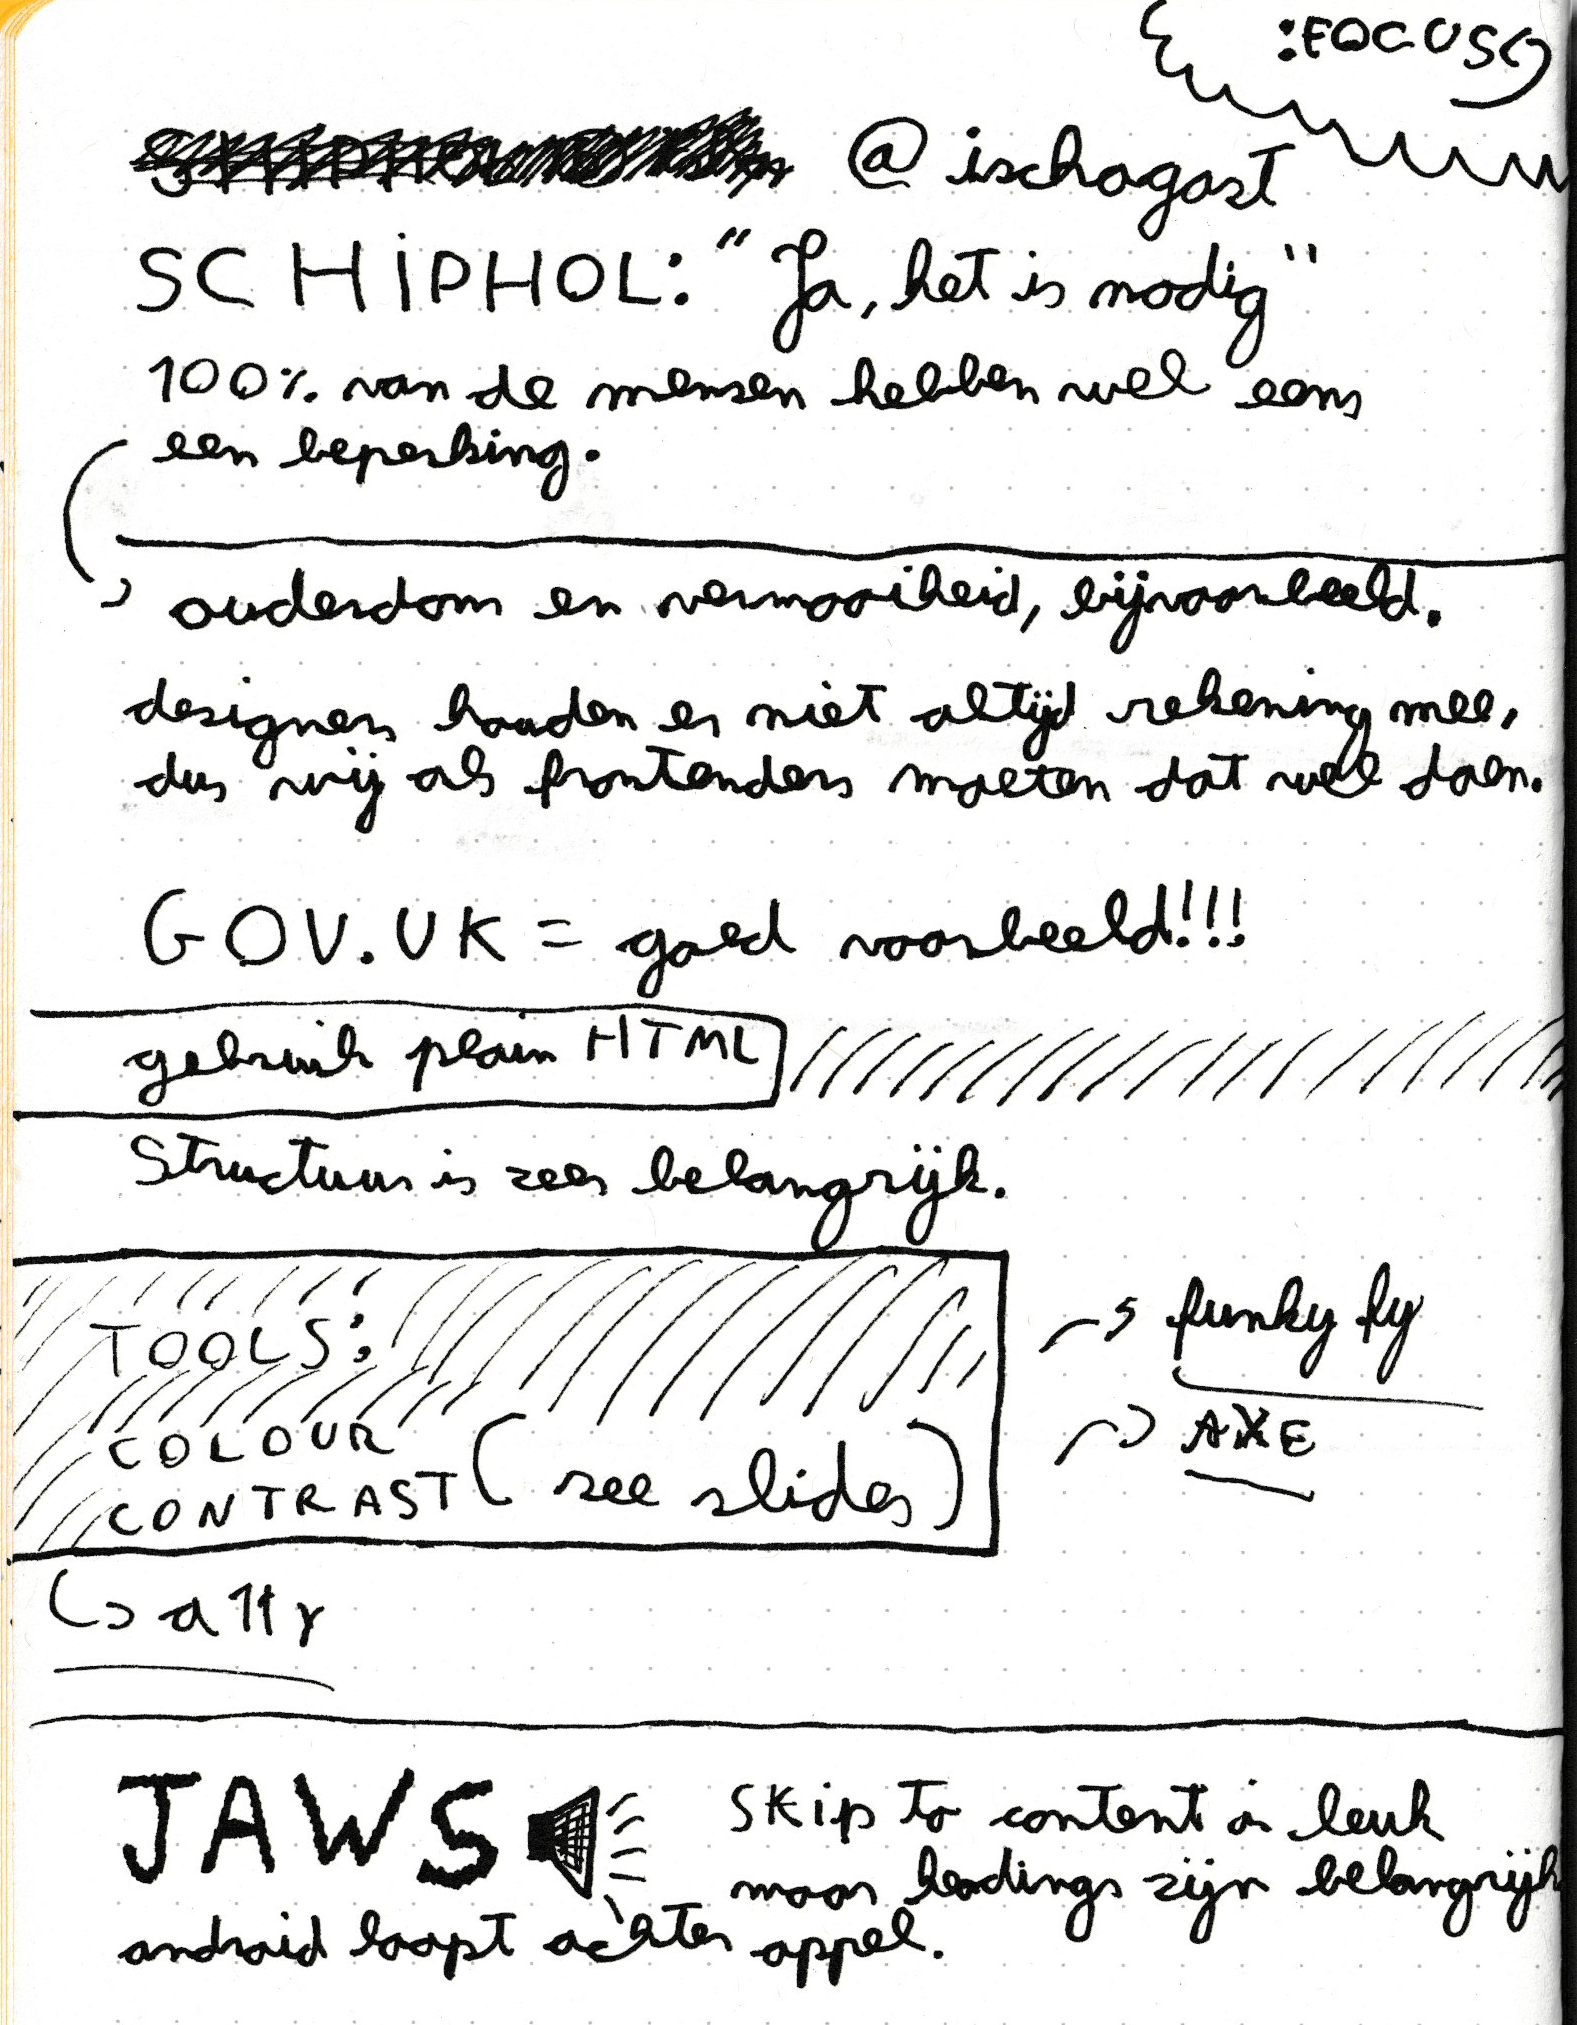 :FOCUS
@ischagast
SCHIPHOL: "Ja, het is nodig"
100% van de mensen hebben wel eens
een beperking.
ouderdom en vermooiheid, bijvoorbeeld.
designers houden er niet altijd rekening mee,
dus wij als frontenders moeten dat wel doen.
GOV.UK = goed voorbeeld!!!
gebruik plain HTML
Structuur is zeer belangrijk.
TOOLS:
COLOUR
CONTRAST (zee slides)
funky fy
AXE
a11y
JAWS
Skip to content is leuk
maar headings zijn belangrijk
android loopt achter appel.